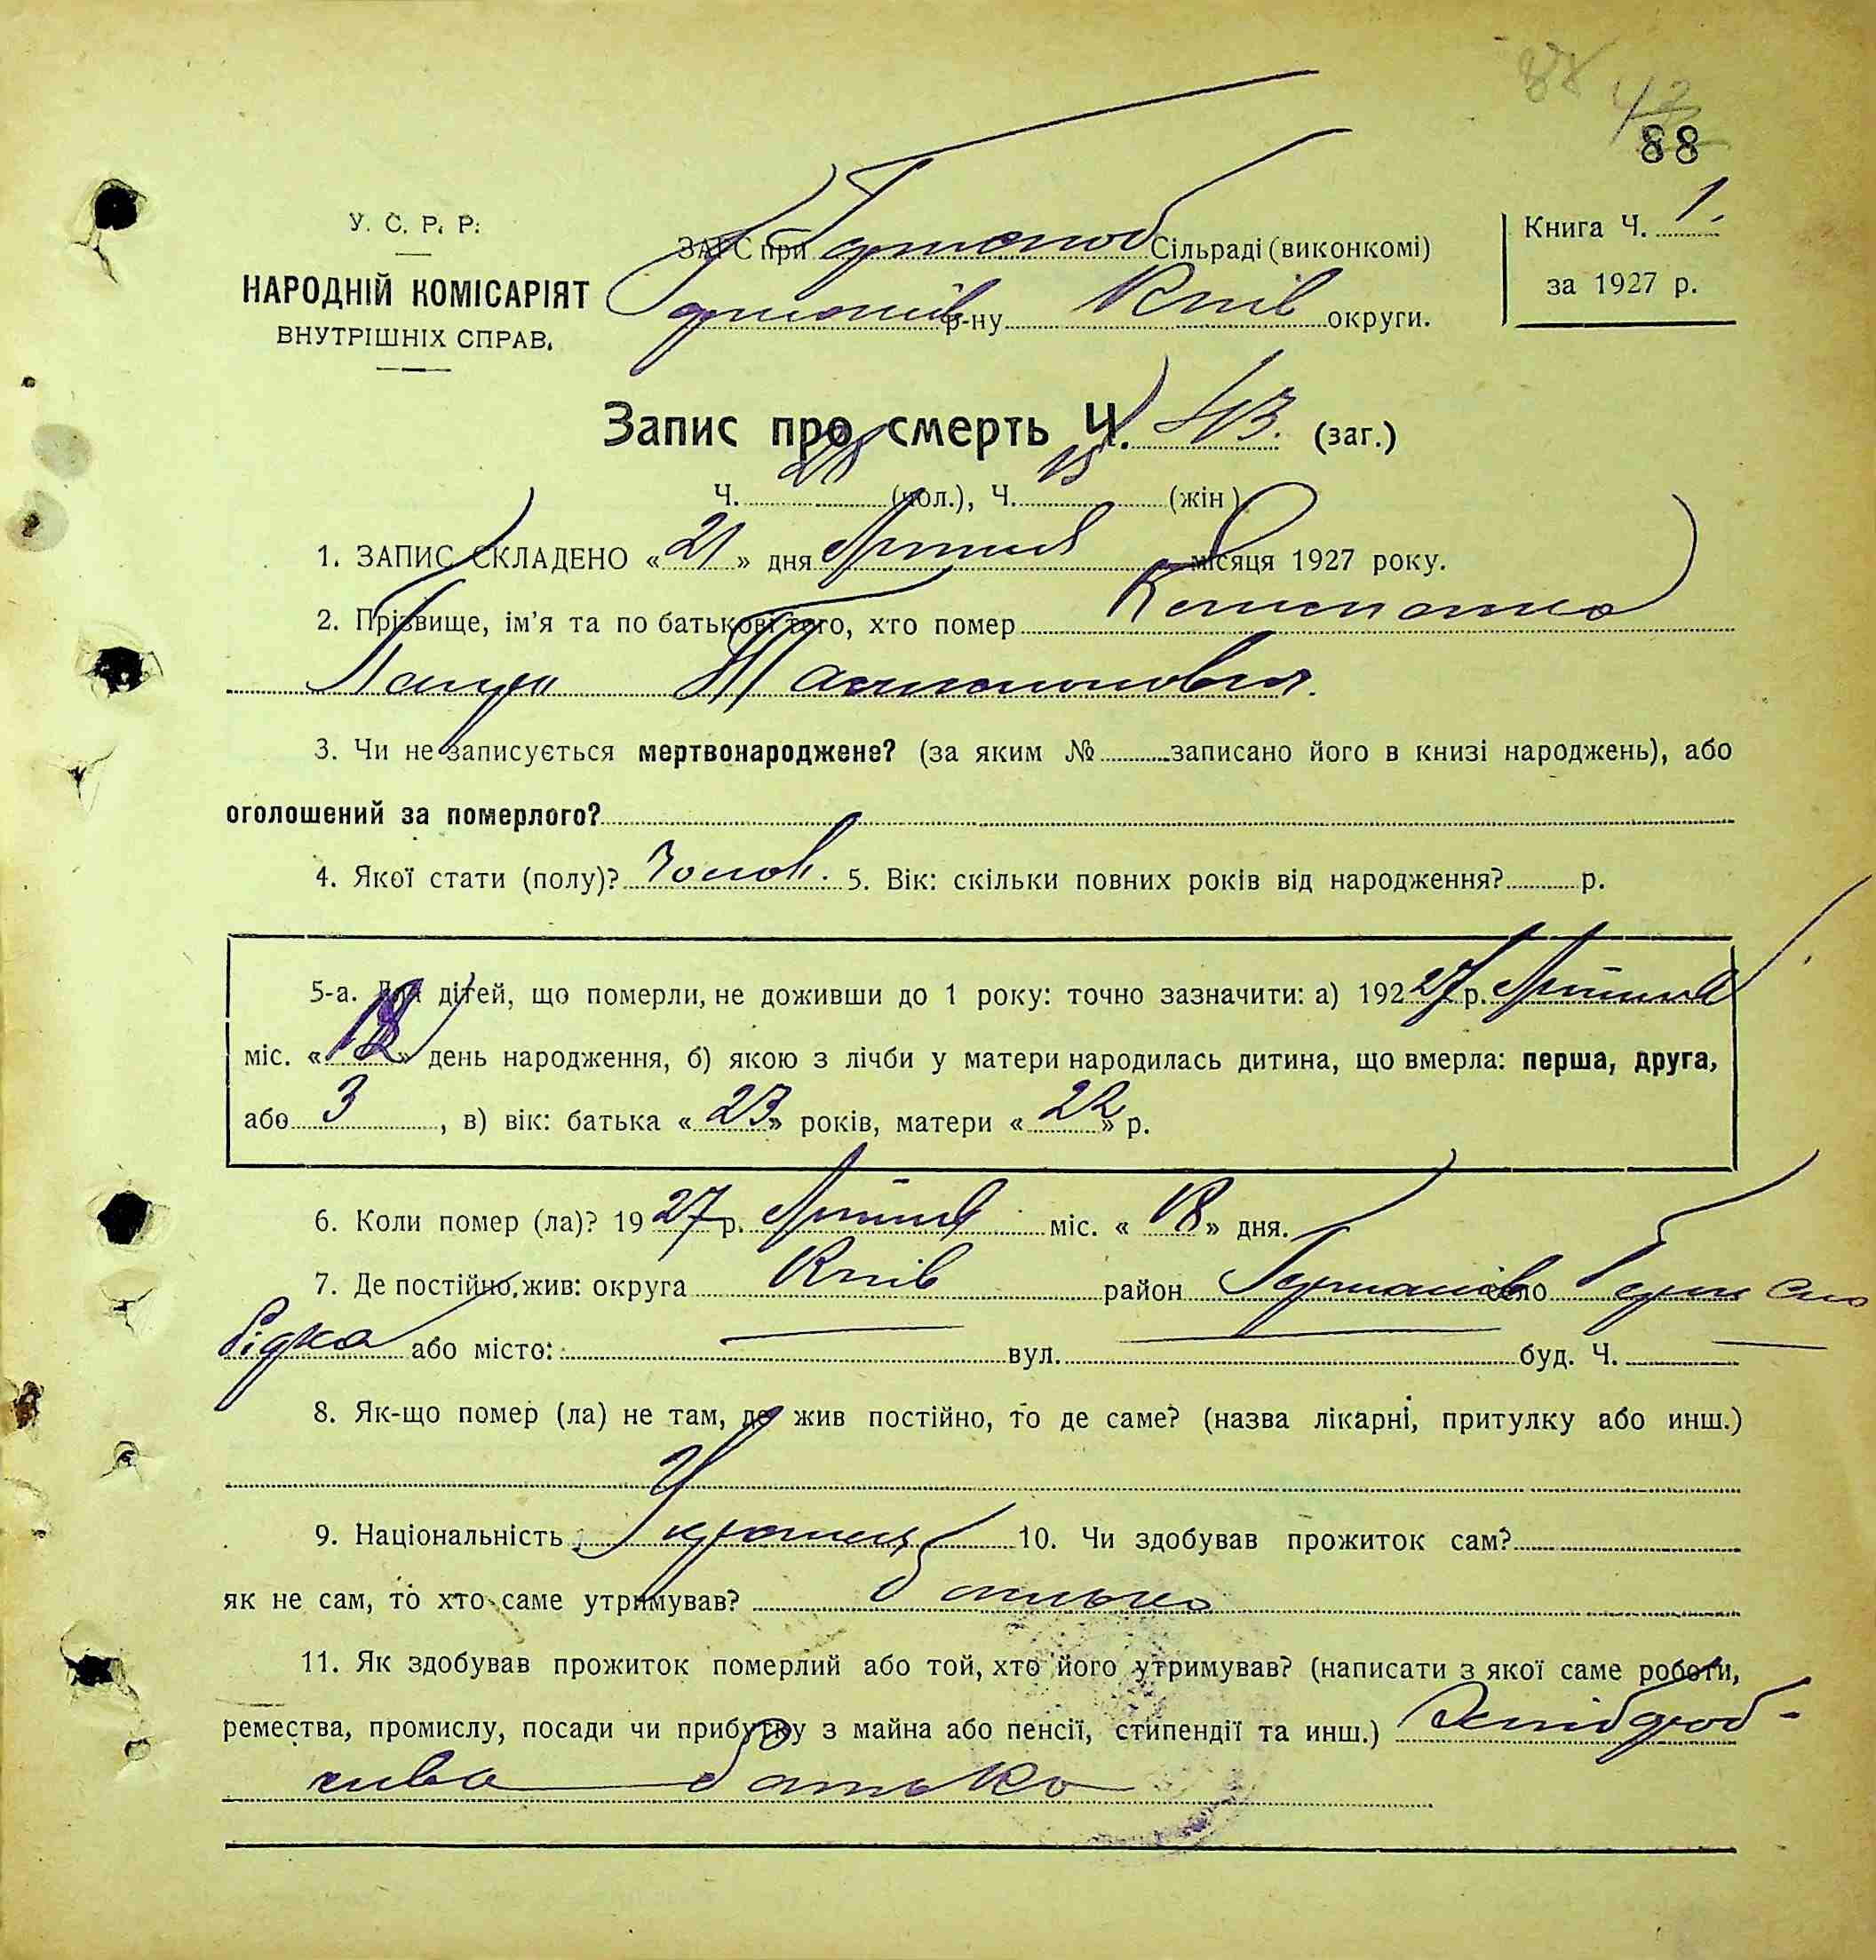 88 42
88
У. С. Р. Р.
НАРОДНІЙ КОМІСАРІЯТ
ВНУТРІШНІХ СПРАВ.
ЗАГС при Германов Сільраді (виконкомі)
Германів р-ну Київ округи.
Книга Ч. 1.
за 1927 р.
Запис про смерть Ч. 43. (заг.)
Ч. 28 (чол.), Ч. 15 (жін.)
1. ЗАПИС СКЛАДЕНО «21» дня Липня місяця 1927 року.
2. Прізвище, ім'я та по батькові того, хто помер
3. Чи не записується мертвонароджене? (за яким № записано його в книзі народжень), або
оголошений за померлого?
4. Якої стати (полу)? Чолов. 5. Вік: скільки повних років від народження? р.
5-а. Для дітей, що померли, не доживши до 1 року: точно зазначити: а) 192 27 р. Липня
міс. « » день народження, б) якою з лічби у матери народилась дитина, що вмерла: перша, друга,
або 3, в) вік: батька «23» років, матери «22» р.
6. Коли помер (ла)? 1927 р. Липня міс. «18» дня.
7. Де постійно жив: округа Київ район Германів село Герм Сло
бідка або місто: — вул. — буд. Ч. —
8. Як-що помер (ла) не там, де жив постійно, то де саме? (назва лікарні, притулку або инш.)
9. Національність Україн 10. Чи здобував прожиток сам?
як не сам, то хто саме утримував? батько
11. Як здобував прожиток померлий або той, хто його утримував? (написати з якої саме роботи,
ремества, промислу, посади чи прибутку з майна або пенсії, стипендії та инш.)
батько